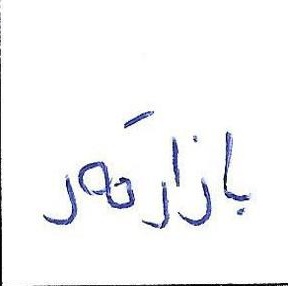 بازارکەر